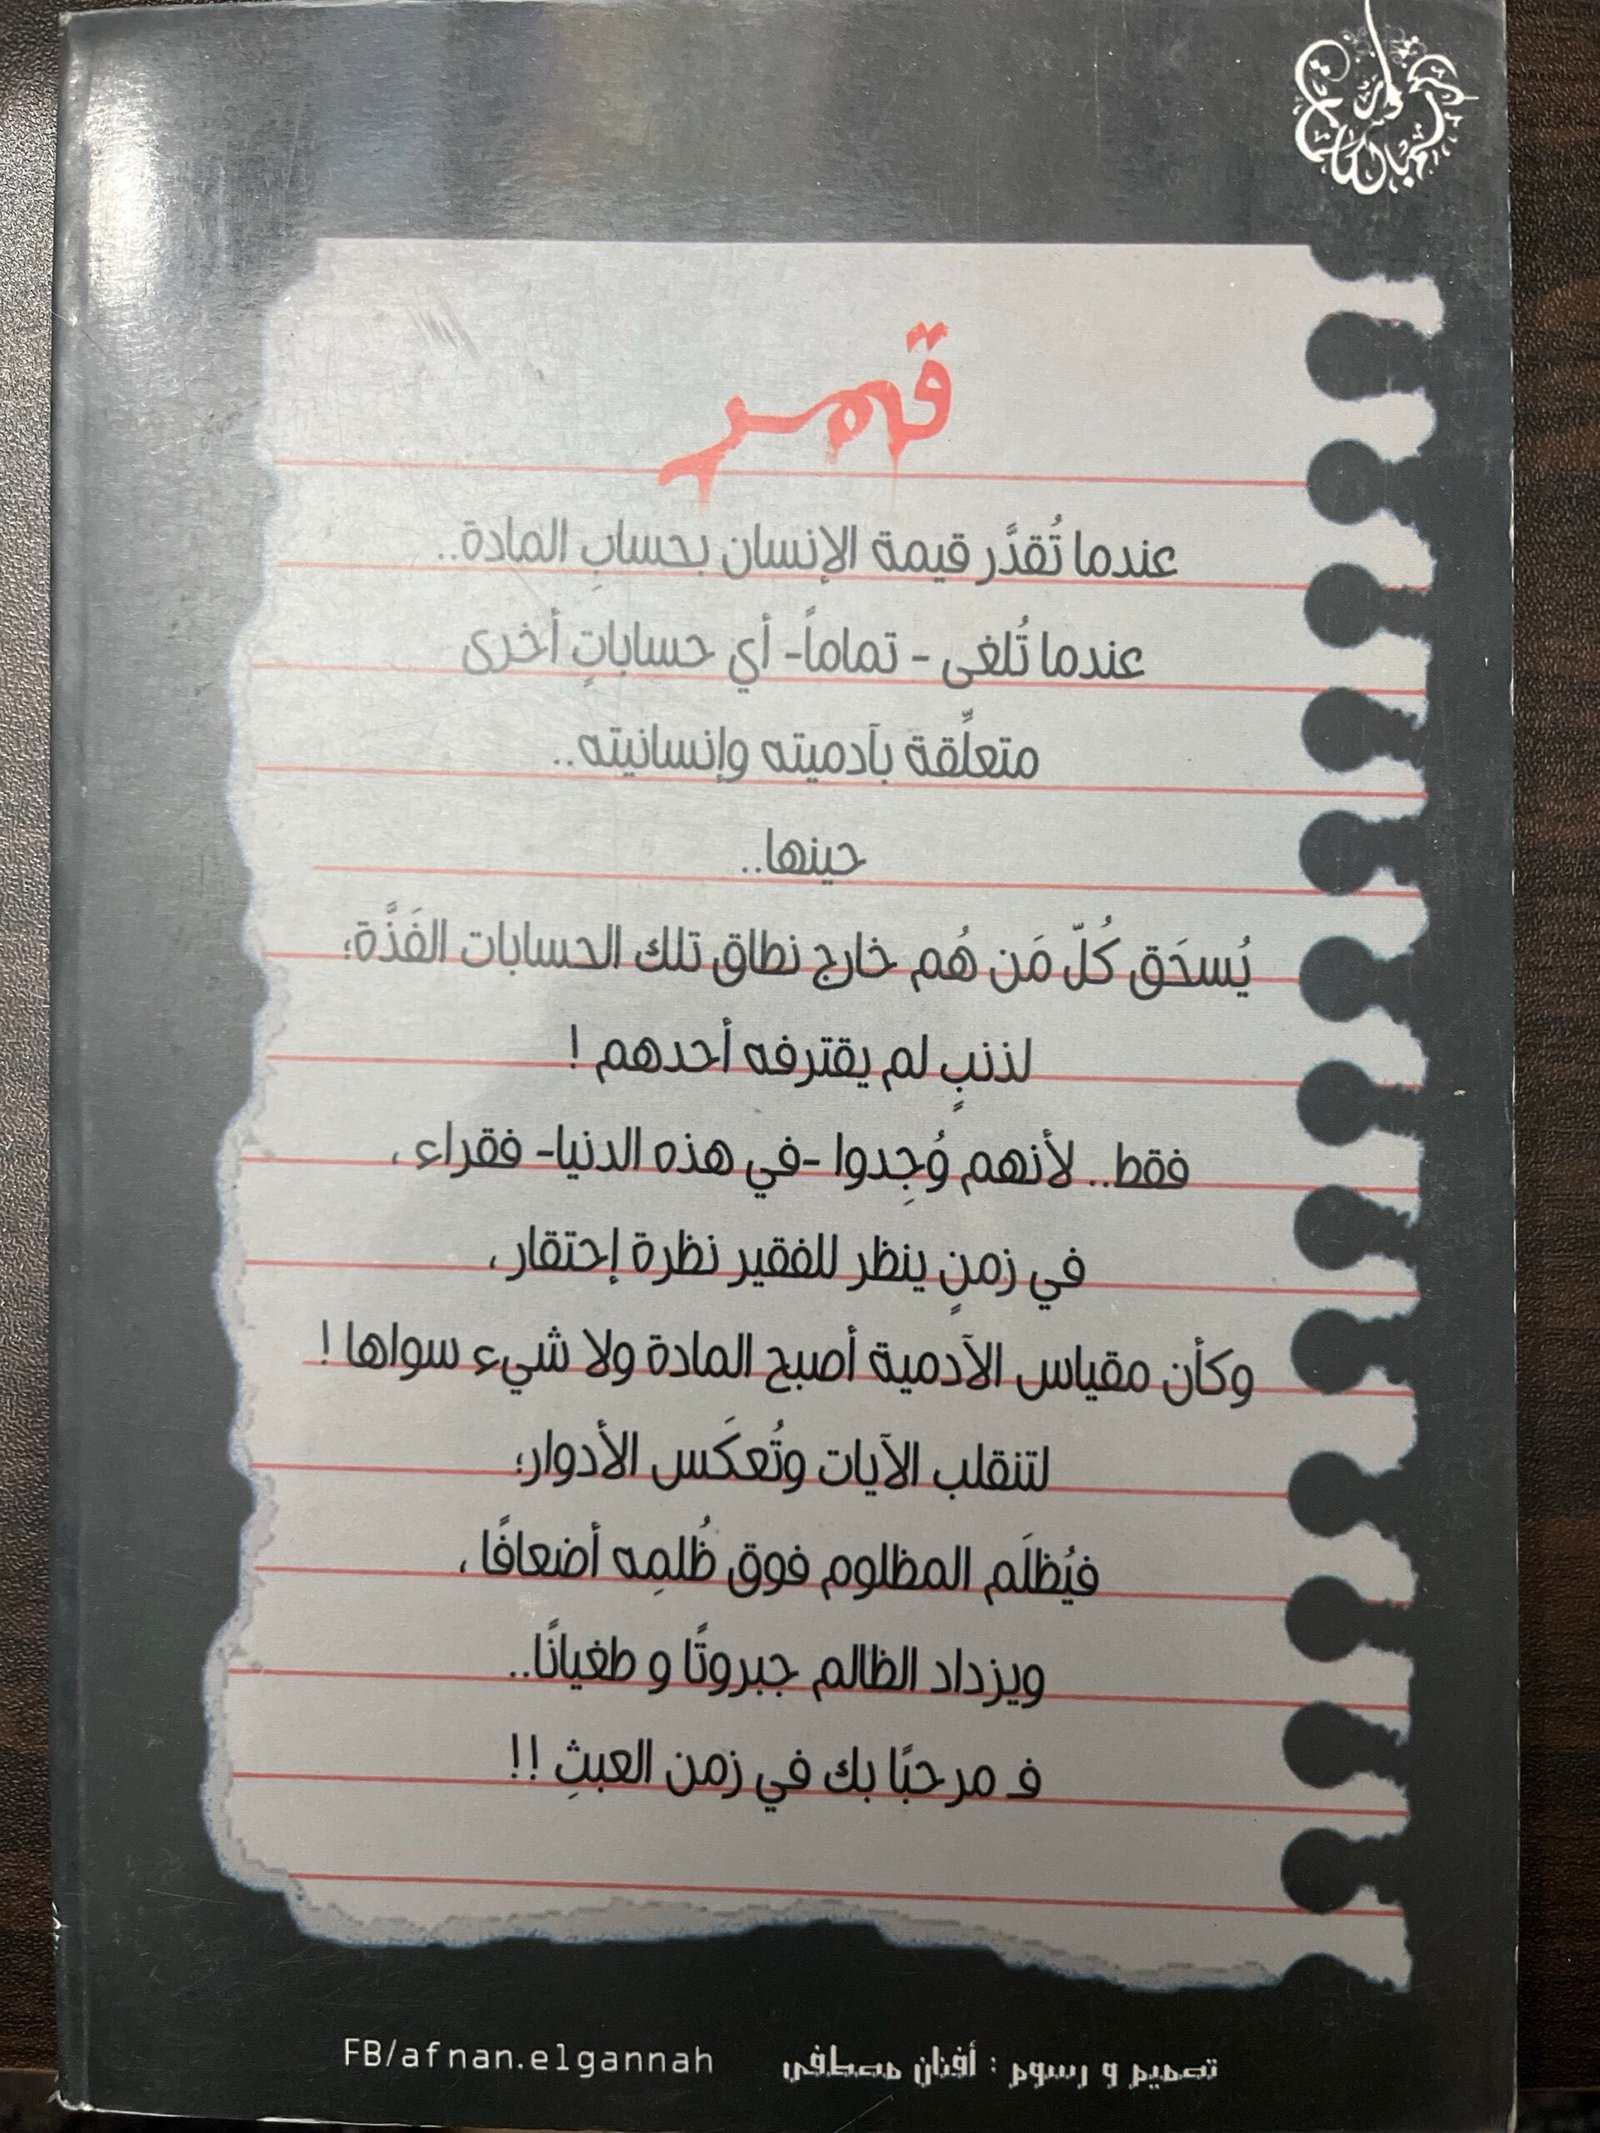 قمر
عندما تُقدَّر قيمة الإنسان بحسابِ المادة..
عندما تُلغى - تماماً- أي حساباتٍ أخرى
متعلِّقة بآدميته وإنسانيته..
حينها..
يُسحَق كُلّ مَن هُم خارج نطاق تلك الحسابات الفَذَّة؛
لذنبٍ لم يقترفه أحدهم !
فقط.. لأنهم وُجِدوا -في هذه الدنيا- فقراء ،
في زمنٍ ينظر للفقير نظرة إحتقار ،
وكأن مقياس الآدمية أصبح المادة ولا شيء سواها !
لتنقلب الآيات وتُعكَس الأدوار؛
فيُظلَم المظلوم فوق ظُلمِه أضعافًا ،
ويزداد الظالم جبروتًا و طغيانًا..
فـ مرحبًا بك في زمن العبثِ !!
تصميم و رسوم : أفنان مصطفى FB/afnan.elgannah